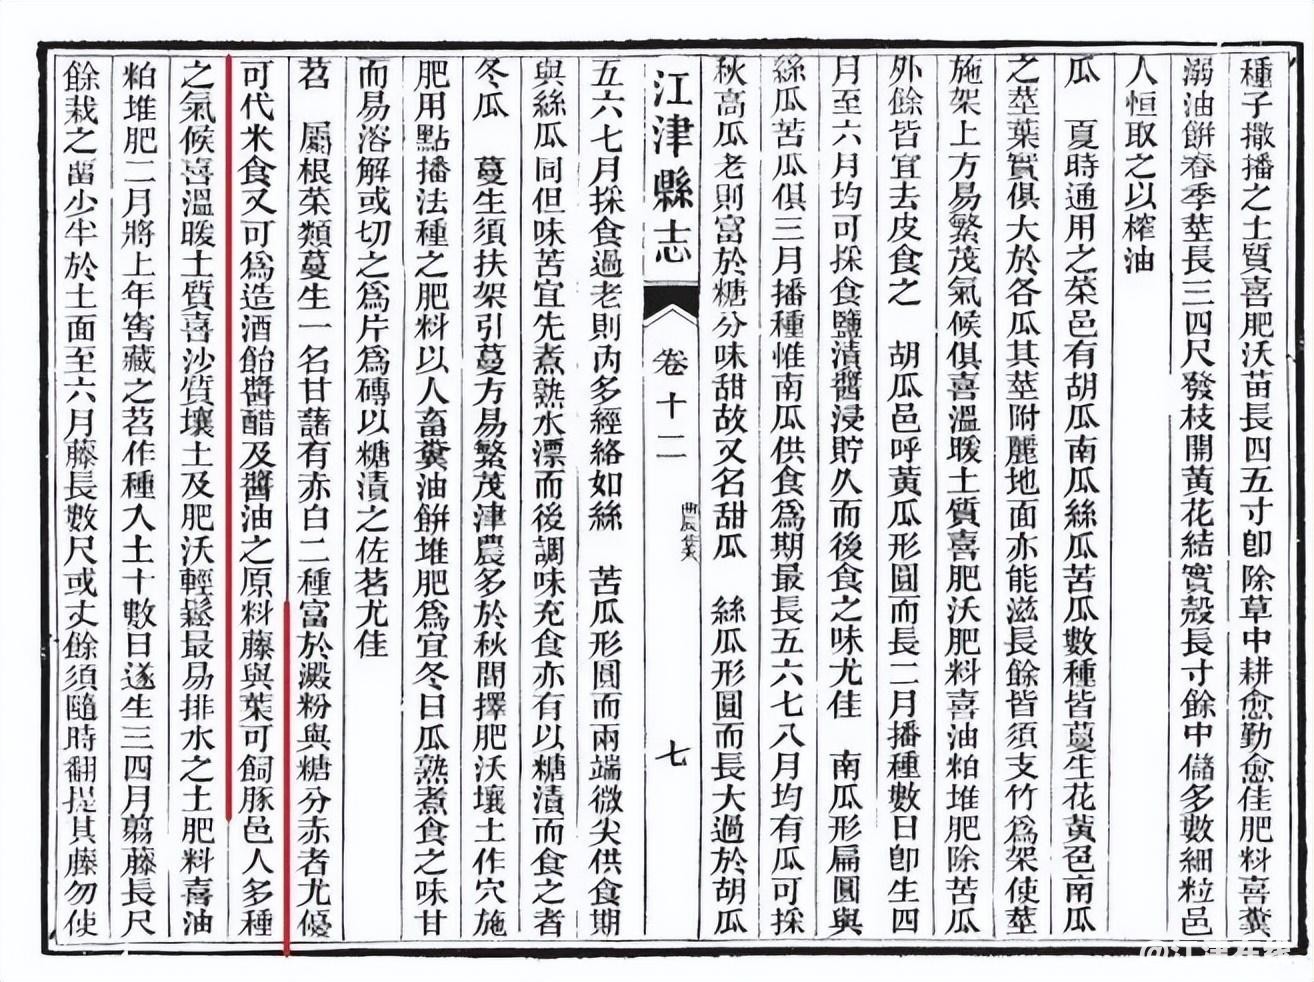 種子撒播之土質喜肥沃苗長四五寸卽除草中耕愈勤愈佳肥料喜糞
溺油餅春季莖長三四尺發枝開黃花結實殼長寸餘中儲多數細粒邑
人恒取之以榨油
瓜　夏時通用之菜邑有胡瓜南瓜絲瓜苦瓜數種皆蔓生花黃色南瓜
之莖葉實俱大於各瓜其莖附麗地面亦能滋長餘皆須支竹爲架使莖
施架上方易繁茂氣候俱喜溫暖土質喜肥沃肥料喜油粕堆肥除苦瓜
外餘皆宜去皮食之　胡瓜邑呼黃瓜形圓而長二月播種數日卽生四
月至六月均可採食鹽漬醬浸貯久而後食之味尤佳　南瓜形扁圓與
絲瓜苦瓜俱三月播種惟南瓜供食爲期最長五六七八月均有瓜可採
秋高瓜老則富於糖分味甜故又名甜瓜　絲瓜形圓而長大過於胡瓜
江津縣志　卷十二　農業　七
五六七月採食過老則內多經絡如絲　苦瓜形圓而兩端微尖供食期
與絲瓜同但味苦宜先煮熟水漂而後調味充食亦有以糖漬而食之者
冬瓜　蔓生須扶架引蔓方易繁茂津農多於秋間擇肥沃壤土作穴施
肥用點播法種之肥料以人畜糞油餅堆肥爲宜冬日瓜熟煮食之味甘
而易溶解或切之爲片爲磚以糖漬之佐茗尤佳
苕　屬根菜類蔓生一名甘藷有赤白二種富於澱粉與糖分赤者尤優
可代米食又可爲造酒飴醬醋及醬油之原料藤與葉可飼豚邑人多種
之氣候喜溫暖土質喜沙質壤土及肥沃輕鬆最易排水之土肥料喜油
粕堆肥二月將上年窖藏之苕作種入土十數日遂生三四月翦藤長尺
餘栽之留少半於土面至六月藤長數尺或丈餘須隨時翻提其藤勿使
@江津在线